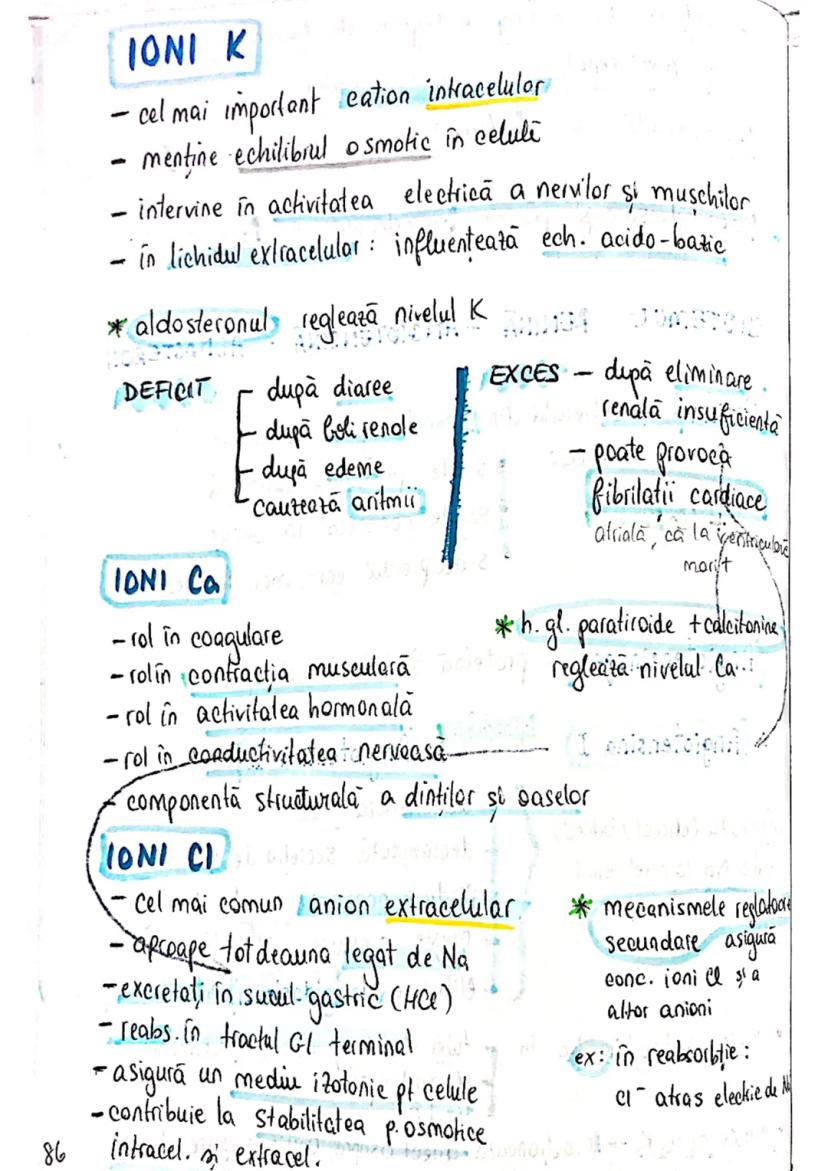 IONI K
- cel mai important cation intracelular
- menține echilibrul osmotic în celulă
- intervine în activitatea electrică a nervilor și mușchilor
- în lichidul extracelular: influențează ech. acido-bazic
* aldosteronul reglează nivelul K
DEFICIT
după diaree
după boli renale
după edeme
cauzează aritmii
EXCES - după eliminare
renală insuficientă
- poate provoca
fibrilații cardiace
atrială, că la ventriculară
mori
IONI Ca
- rol în coagulare
- rol în contracția musculară
- rol în activitatea hormonală
- rol în conductivitatea nervoasă
- componentă structurală a dinților și oaselor
* h. gl. paratiroide + calcitonine
reglează nivelul Ca
IONI Cl
- cel mai comun anion extracelular
- aproape totdeauna legat de Na
- excretați în sucul gastric (HCl)
- reabs. în tractul GI terminal
- asigură un mediu izotonic pt celule
- contribuie la stabilitatea p. osmotice
intracel. și extracel.
* mecanismele reglatoare
secundare asigură
conc. ioni Cl și a
altor anioni
ex: în reabsorbție:
Cl⁻ atras electric de Na
86